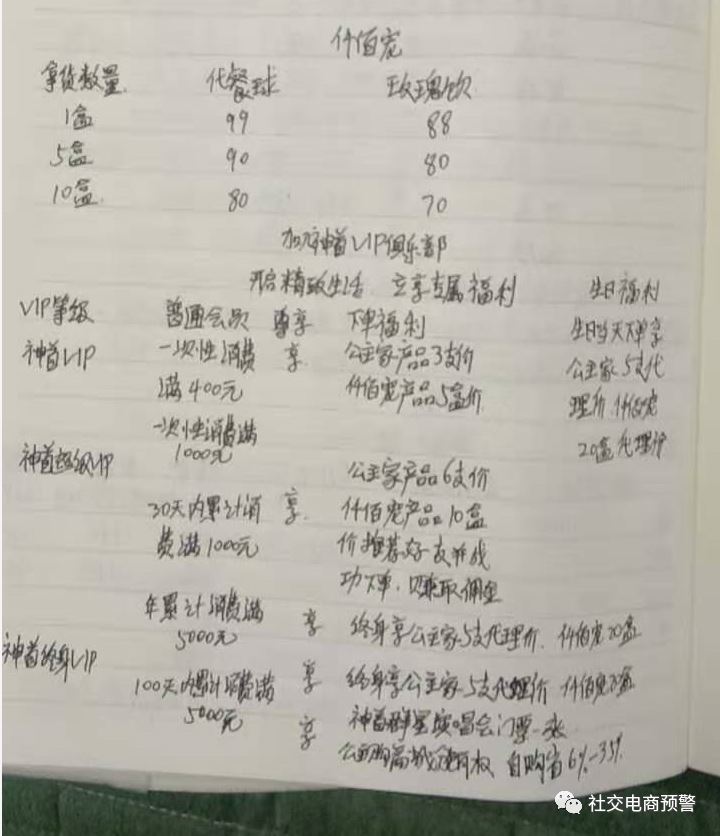 仟佰宠
拿货数量 代餐球 玫瑰饮
1盒 99 88
5盒 90 80
10盒 80 70
加入神首VIP俱乐部
开启精致生活 立享专属福利 生日福利
VIP等级 普通会员 尊享 下单福利 生日当天下单享
神首VIP 一次性消费 享 公主家产品3支价 公主家5支代
满400元 仟佰宠产品5盒价 理价 仟佰宠
一次性消费满 20盒代理价
1000元
神首超级VIP 公主家产品6支价
30天内累计消 享 仟佰宠产品10盒
费满1000元 价推荐好友并成
功下单，赚取佣金
年累计消费满
5000元 享 终身享公主家5支代理价，仟佰宠20盒
神首终身VIP
100天内累计消费满 享 终身享公主家5支代理价 仟佰宠 盒
5000元 享 神首群星演唱会门票一张
自购省6%-35%
社交电商预警